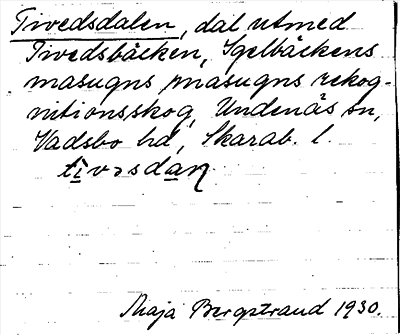 Tivedsdalen, dal utmed
Tivedsbäcken, Igelbäckens
masugns masugns rekog-
nitionsskog, Undenäs sn,
Vadsbo hd, Skarab. l.
tìvəsdaɳ
Maja Bergstrand 1930.